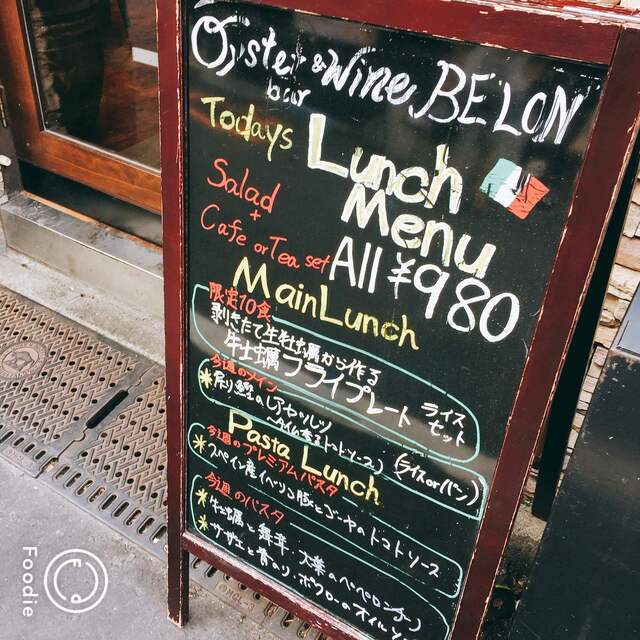 Oyster & Wine BELON
bar
Todays Lunch Menu
Salad
+
Cafe or Tea set
All ¥980
Main Lunch
限定10食
剥きたて生牡蠣から作る
牡蠣フライプレート ライスセット
今週のメイン
*戻り鰹の
トマトソース)
(ライス or パン)
Pasta Lunch
今週のプレミアムパスタ
*スペイン産イベリコ豚とゴーヤのトマトソース
今週のパスタ
*牡蠣と舞茸 大葉のペペロンチーノ
*サザエと青のり
Foodie